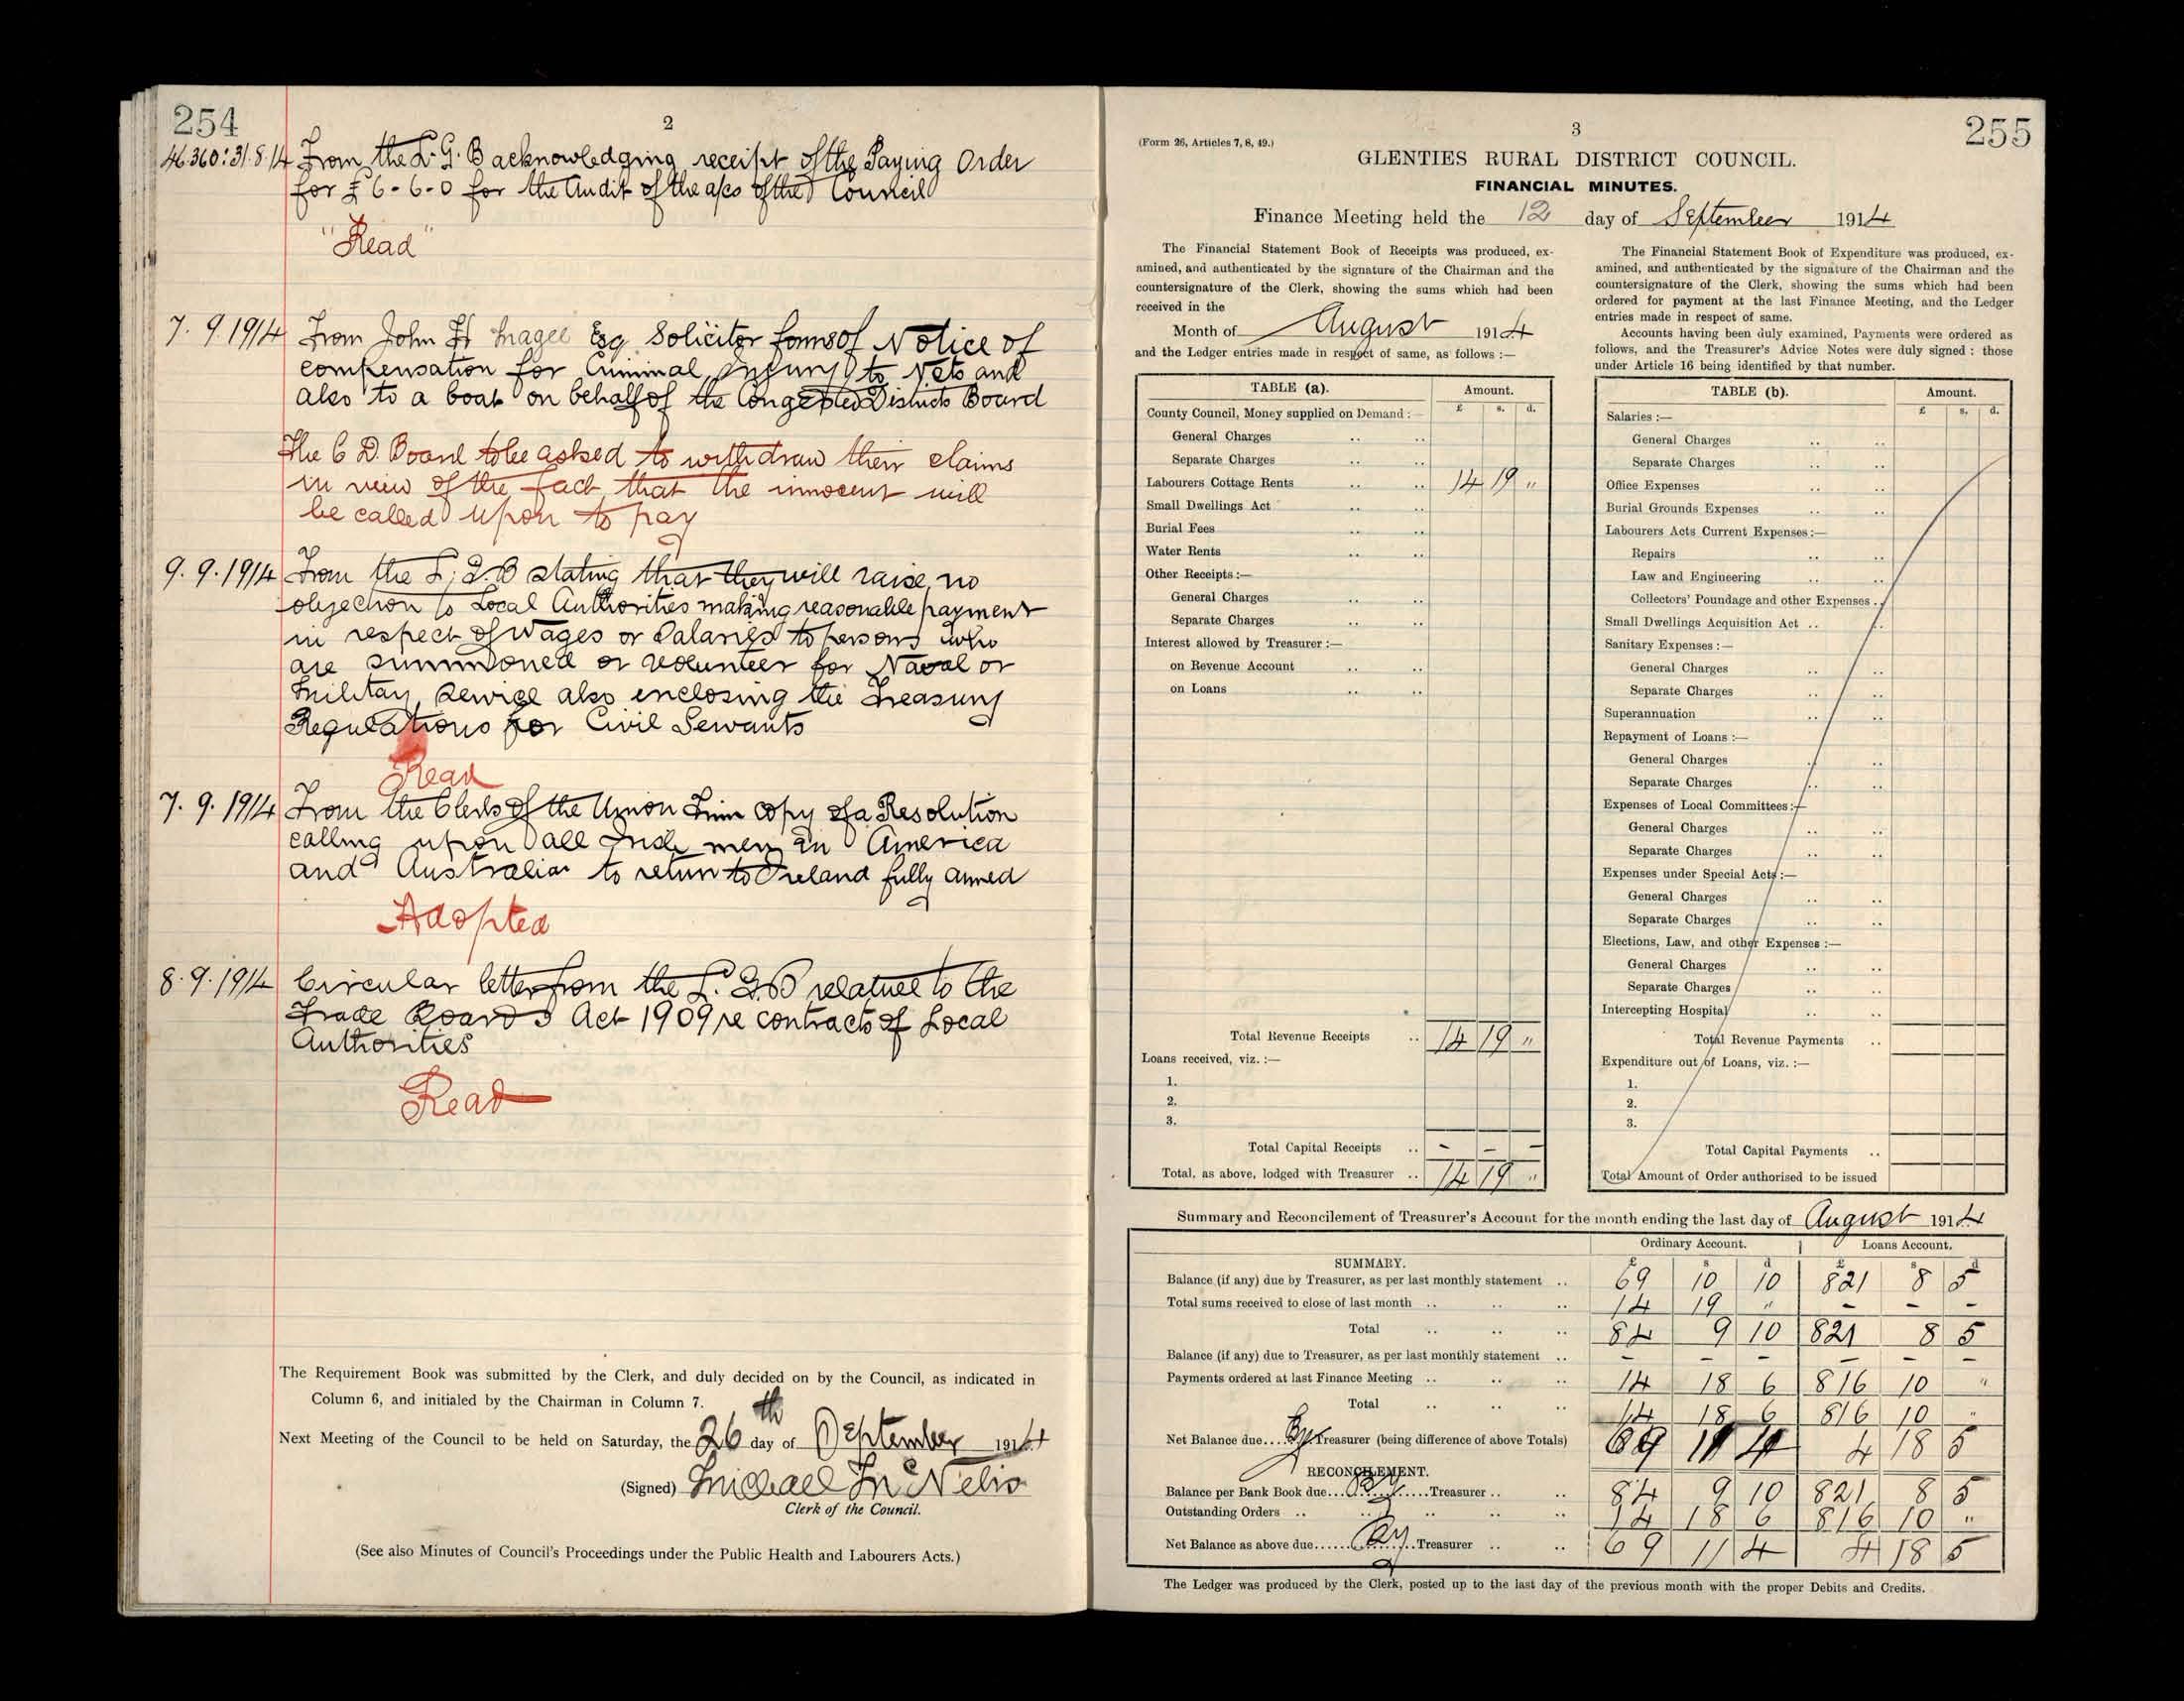 254
2
46360:31.8.14 From the L.G.B acknowledging receipt of the Paying Order
for £6-6-0 for the Audit of the a/cs of the Council
"Read"
7.9.1914 From John H Magee Esq Solicitor forms of Notice of
compensation for Criminal Injury to Nets and
also to a boat on behalf of the Congested Districts Board
The C D. Board to be asked to withdraw their claims
in view of the fact that the innocent will
be called upon to pay
9.9.1914 From the L.G.B stating that they will raise no
objection to Local Authorities making reasonable payment
in respect of Wages or Salaries to persons who
are summoned or volunteer for Naval or
Military Service also enclosing the Treasury
Regulations for Civil Servants
Read
7.9.1914 From the Clerk of the Union Trim copy of a Resolution
calling upon all Irish men in America
and Australia to return to Ireland fully armed
Adopted
8.9.1914 Circular letter from the L.G.B relative to the
Trade Boards Act 1909 re contracts of Local
Authorities
Read
The Requirement Book was submitted by the Clerk, and duly decided on by the Council, as indicated in
Column 6, and initialed by the Chairman in Column 7.
Next Meeting of the Council to be held on Saturday, the 26th day of September 1914
(Signed) Michael McNelis
Clerk of the Council.
(See also Minutes of Council's Proceedings under the Public Health and Labourers Acts.)
3
255
(Form 26, Articles 7, 8, 49.)
GLENTIES RURAL DISTRICT COUNCIL.
FINANCIAL MINUTES.
Finance Meeting held the 12 day of September 1914
The Financial Statement Book of Receipts was produced, ex-
amined, and authenticated by the signature of the Chairman and the
countersignature of the Clerk, showing the sums which had been
received in the
Month of August 1914
and the Ledger entries made in respect of same, as follows :—
TABLE (a). Amount.
£ s. d.
County Council, Money supplied on Demand :—
General Charges .. ..
Separate Charges .. ..
Labourers Cottage Rents .. .. 14 19 "
Small Dwellings Act .. ..
Burial Fees .. ..
Water Rents .. ..
Other Receipts :—
General Charges .. ..
Separate Charges .. ..
Interest allowed by Treasurer :—
on Revenue Account .. ..
on Loans .. ..
Total Revenue Receipts .. 14 19 "
Loans received, viz. :—
1.
2.
3.
Total Capital Receipts .. – – –
Total, as above, lodged with Treasurer .. 14 19 "
The Financial Statement Book of Expenditure was produced, ex-
amined, and authenticated by the signature of the Chairman and the
countersignature of the Clerk, showing the sums which had been
ordered for payment at the last Finance Meeting, and the Ledger
entries made in respect of same.
Accounts having been duly examined, Payments were ordered as
follows, and the Treasurer's Advice Notes were duly signed : those
under Article 16 being identified by that number.
TABLE (b). Amount.
£ s. d.
Salaries :—
General Charges .. ..
Separate Charges .. ..
Office Expenses .. ..
Burial Grounds Expenses .. ..
Labourers Acts Current Expenses :—
Repairs .. ..
Law and Engineering .. ..
Collectors' Poundage and other Expenses ..
Small Dwellings Acquisition Act .. ..
Sanitary Expenses :—
General Charges .. ..
Separate Charges .. ..
Superannuation .. ..
Repayment of Loans :—
General Charges .. ..
Separate Charges .. ..
Expenses of Local Committees :—
General Charges .. ..
Separate Charges .. ..
Expenses under Special Acts :—
General Charges .. ..
Separate Charges .. ..
Elections, Law, and other Expenses :—
General Charges .. ..
Separate Charges .. ..
Intercepting Hospital .. ..
Total Revenue Payments ..
Expenditure out of Loans, viz. :—
1.
2.
3.
Total Capital Payments ..
Total Amount of Order authorised to be issued
Summary and Reconcilement of Treasurer's Account for the month ending the last day of August 1914
Ordinary Account. Loans Account.
SUMMARY. £ s d £ s d
Balance (if any) due by Treasurer, as per last monthly statement .. 69 10 10 821 8 5
Total sums received to close of last month .. .. .. 14 19 " – – –
Total .. .. .. 84 9 10 821 8 5
Balance (if any) due to Treasurer, as per last monthly statement .. – – – – – –
Payments ordered at last Finance Meeting .. .. .. 14 18 6 816 10 "
Total .. .. .. 14 18 6 816 10 "
Net Balance due....By Treasurer (being difference of above Totals) 69 11 4 4 18 5
RECONCILEMENT.
Balance per Bank Book due...By......Treasurer .. .. 84 9 10 821 8 5
Outstanding Orders .. .. .. .. .. 14 18 6 816 10 "
Net Balance as above due......By..Treasurer .. .. 69 11 4 4 18 5
The Ledger was produced by the Clerk, posted up to the last day of the previous month with the proper Debits and Credits.